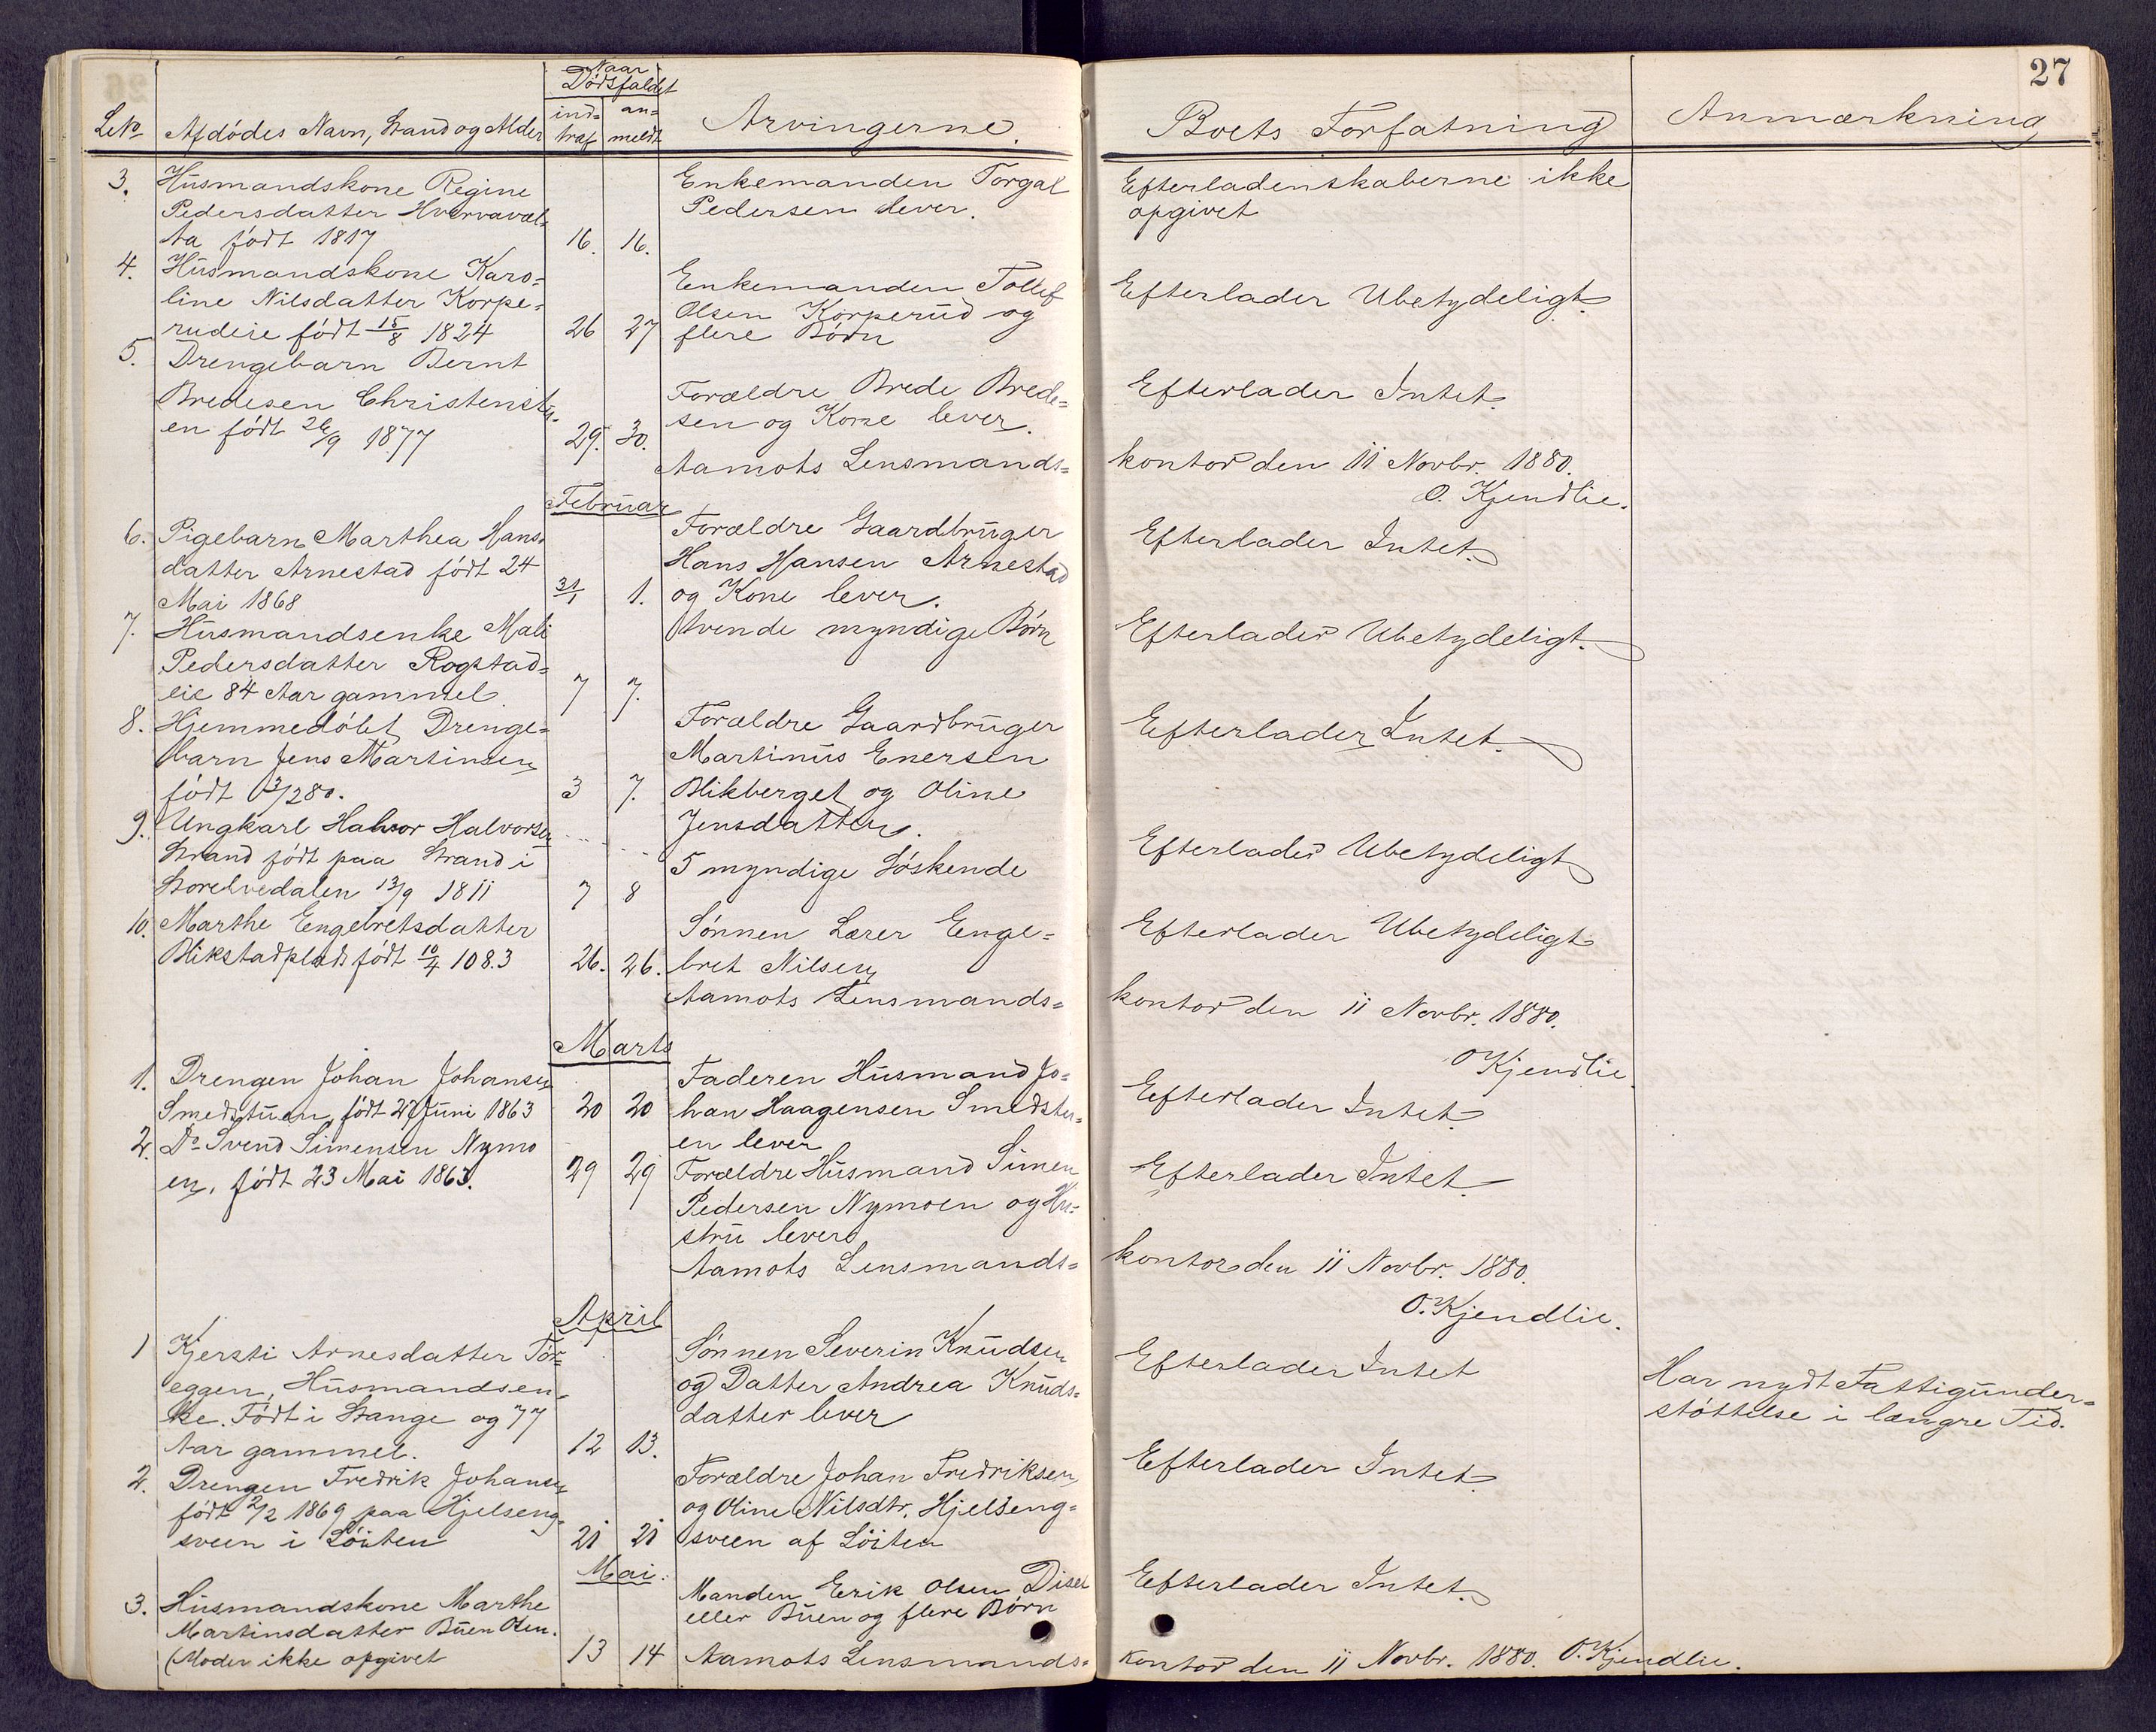 27
Naar
Dødsfaldet
Lbno Afdødes Navn, Stand og Alder ind- traf an- meldt Arvingerne. Boets Forfatning Anmærkning
3. Husmandskone Regine Enkemanden Torgal Efterladenskaberne ikke
Pedersdatter Pedersen lever. opgivet
ta født 1817 16. 16.
4. Husmandskone Karo=
line Nilsdatter Korpe= Enkemanden Tollef Efterlader Ubetydeligt.
rudeie født 15/8 1824 26 27 Olsen Korperud og
flere Børn
5. Drengebarn Bernt
Bredesen Christenstu- Forældre Brede Brede= Efterlader Intet.
en født 26/9 1877 29. 30. sen og Kone lever.
Aamots Lensmands= kontor den 11 Novbr. 1880.
O. Kjendlie.
Februar
6. Pigebarn Marthea Hans- Forældre Gaardbruger Efterlader Intet.
datter Arnestad født 24 Hans Hansen Arnestad
Mai 1868 31/1 1. og Kone lever.
7. Husmandsenke Mali tvende myndige Børn Efterlader Ubetydeligt.
Pedersdatter Rogstad=
eie 84 Aar gammel 7 7.
8. Hjemmedøbt Drenge= Forældre Gaardbruger Efterlader Intet.
barn Jens Martinsen Martinus Enersen
født 3/2 80. 3 7. Blikberget og Oline
Jensdatter.
9. Ungkarl Halvor Halvorsen
Strand født paa Strand i 5 myndige Søskende Efterlader Ubetydeligt
Storelvedalen 13/9 1811 7 8
10. Marthe Engebretsdatter Sønnen Lærer Enge= Efterlader Ubetydeligt
Blikstadplads født 10/4 108.3 26. 26. bret Nilsen
Aamots Lensmands= kontor den 11 Novbr. 1880.
O Kjendlie.
Marts
1. Drengen Johan Johansen Faderen Husmand Jo= Efterlader Intet.
Smedstuen, født 27 Juni 1863 20 20 han Haagensen Smedstu=
en lever
2. Do Svend Simensen Nymo 29 29 Forældre Husmand Simen Efterlader Intet.
en, født 23 Mai 1863. Pedersen Nymoen og Hu=
stru lever
Aamots Lensmands= kontor den 11 Novbr. 1880.
O. Kjendlie.
April
1 Kjersti Arnesdatter Tør= Sønnen Severin Knudsen Efterlader Intet Har nydt Fattigunder=
eggen, Husmandsen- og Datter Andrea Knuds= støttelse i længre Tid.
ke. Født i Stange og 77 datter lever
Aar gammel. 12 13.
2. Drengen Fredrik Johansen Forældre Johan Fredriksen Efterlader Intet.
født 2/2 1869 paa Hjelseng= og Oline Nilsdtr. Hjelseng=
sveen i Løiten 21 21 sveen af Løiten
Mai.
3. Husmandskone Marthe Manden Erik Olsen Diset Efterlader Intet.
Martinsdatter Buen Osen. eller Buen og flere Børn
(Moder ikke opgivet 13 14 Aamots Lensmands= kontor den 11 Novbr. 1880. O. Kjendlie.